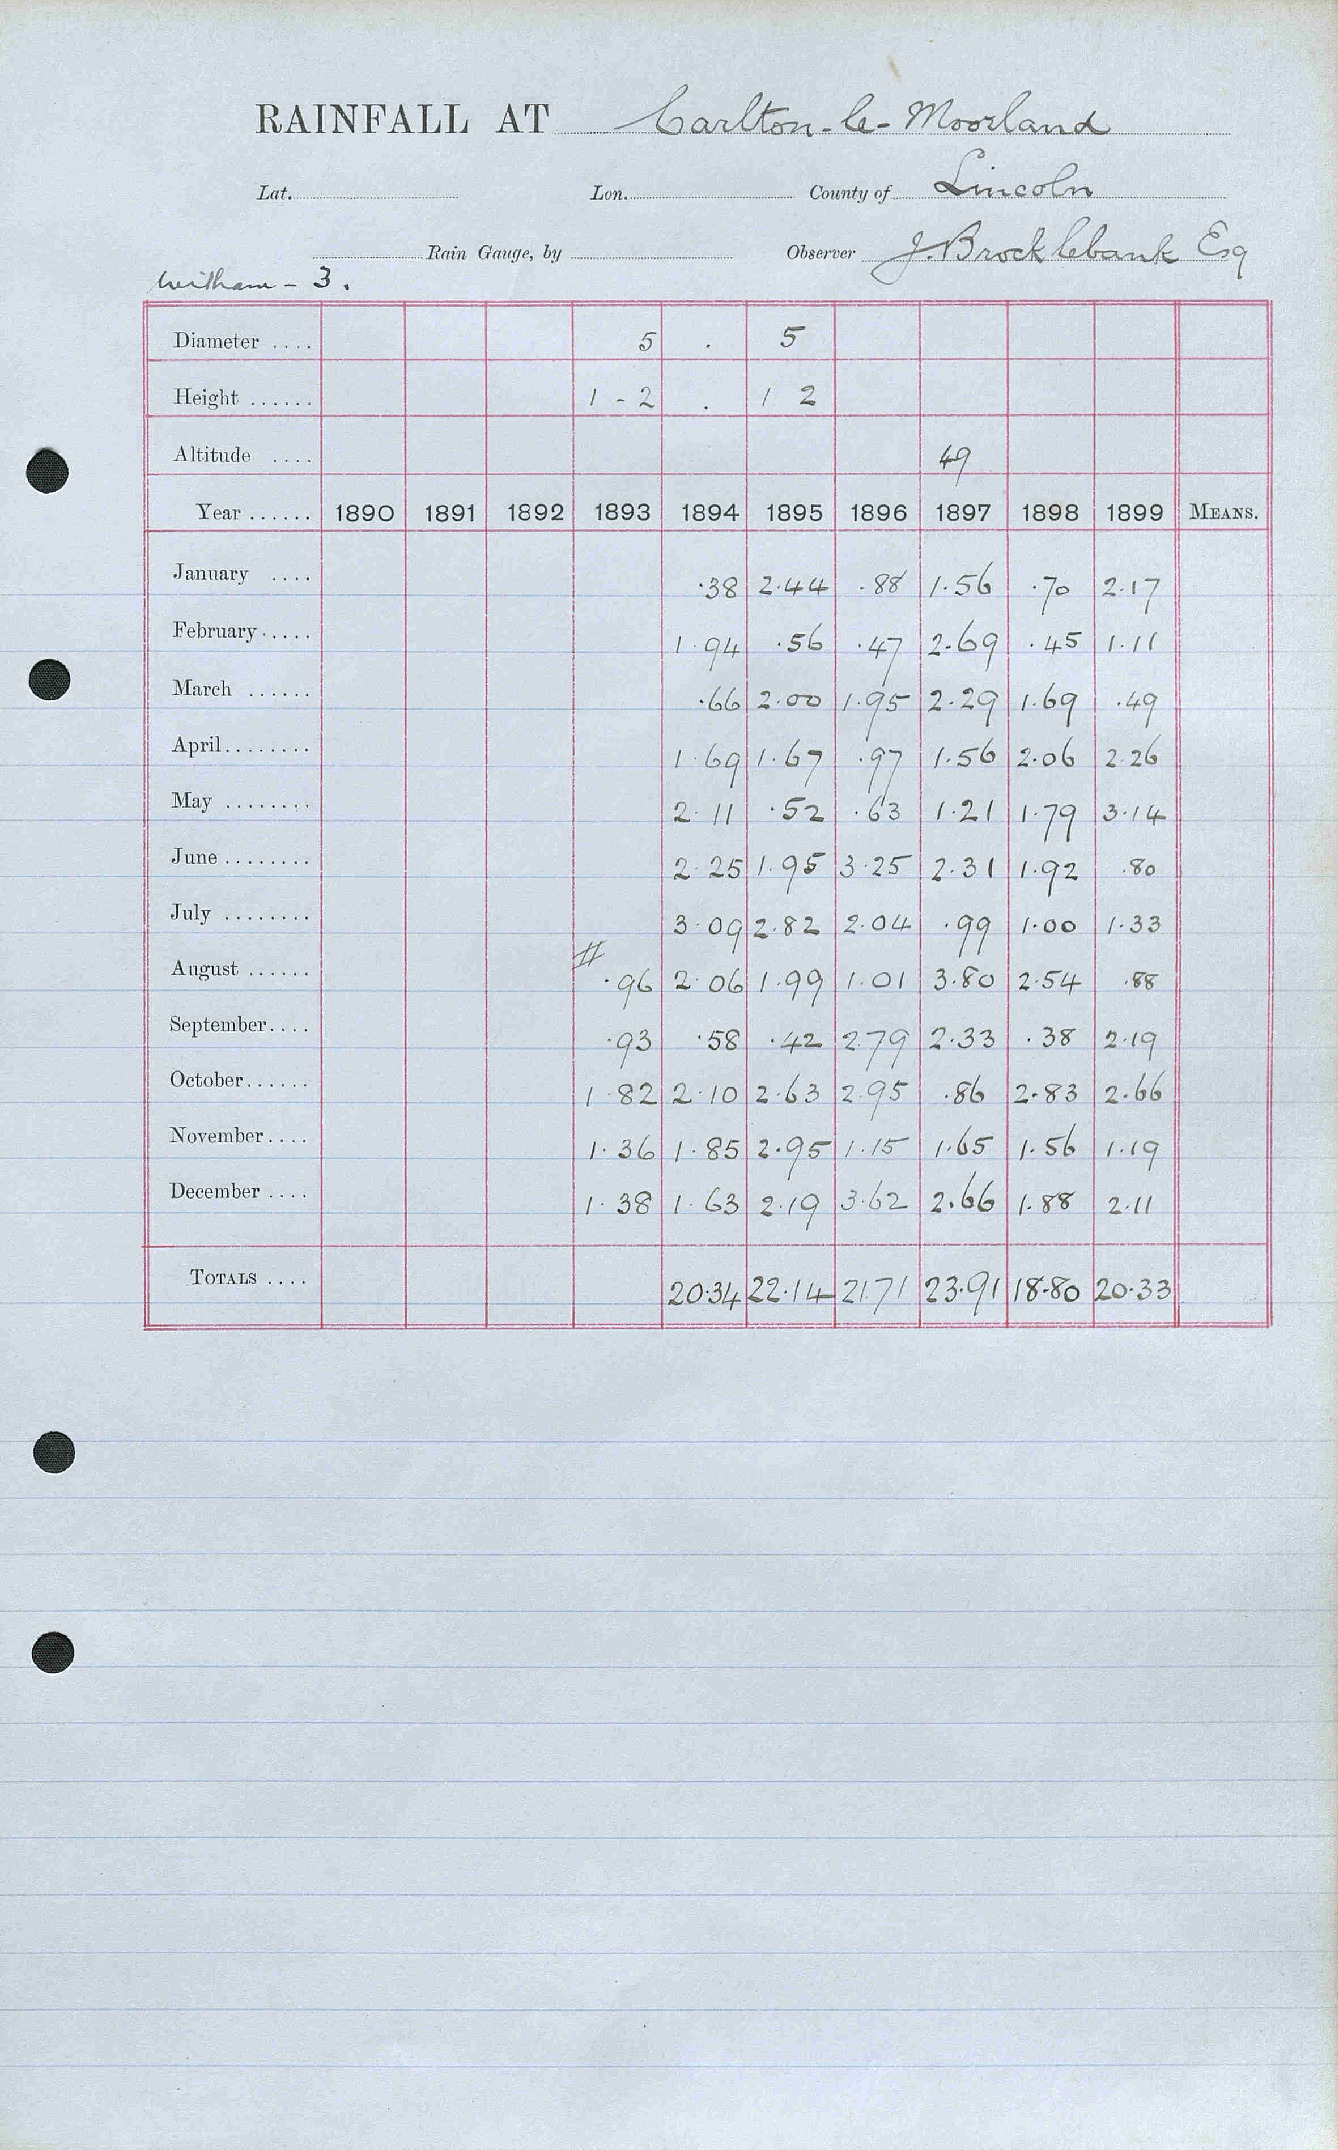 RAINFALL AT Carlton-le-Moorland
Lat. Lon. County of Lincoln
Rain Gauge, by Observer J. Brocklebank Esq
Witham - 3.
Diameter .... 5 . 5
Height ...... 1 - 2 . 1 2
Altitude .... 49
Year ...... 1890 1891 1892 1893 1894 1895 1896 1897 1898 1899 MEANS.
January .... .38 2.44 .88 1.56 .70 2.17
February..... 1.94 .56 .47 2.69 .45 1.11
March ...... .66 2.00 1.95 2.29 1.69 .49
April........ 1.69 1.67 .97 1.56 2.06 2.26
May ........ 2.11 .52 .63 1.21 1.79 3.14
June........ 2.25 1.95 3.25 2.31 1.92 .80
July ........ 3.09 2.82 2.04 .99 1.00 1.33
August ...... # .96 2.06 1.99 1.01 3.80 2.54 .88
September.... .93 .58 .42 2.79 2.33 .38 2.19
October...... 1.82 2.10 2.63 2.95 .86 2.83 2.66
November.... 1.36 1.85 2.95 1.15 1.65 1.56 1.19
December .... 1.38 1.63 2.19 3.62 2.66 1.88 2.11
TOTALS .... 20.34 22.14 21.71 23.91 18.80 20.33